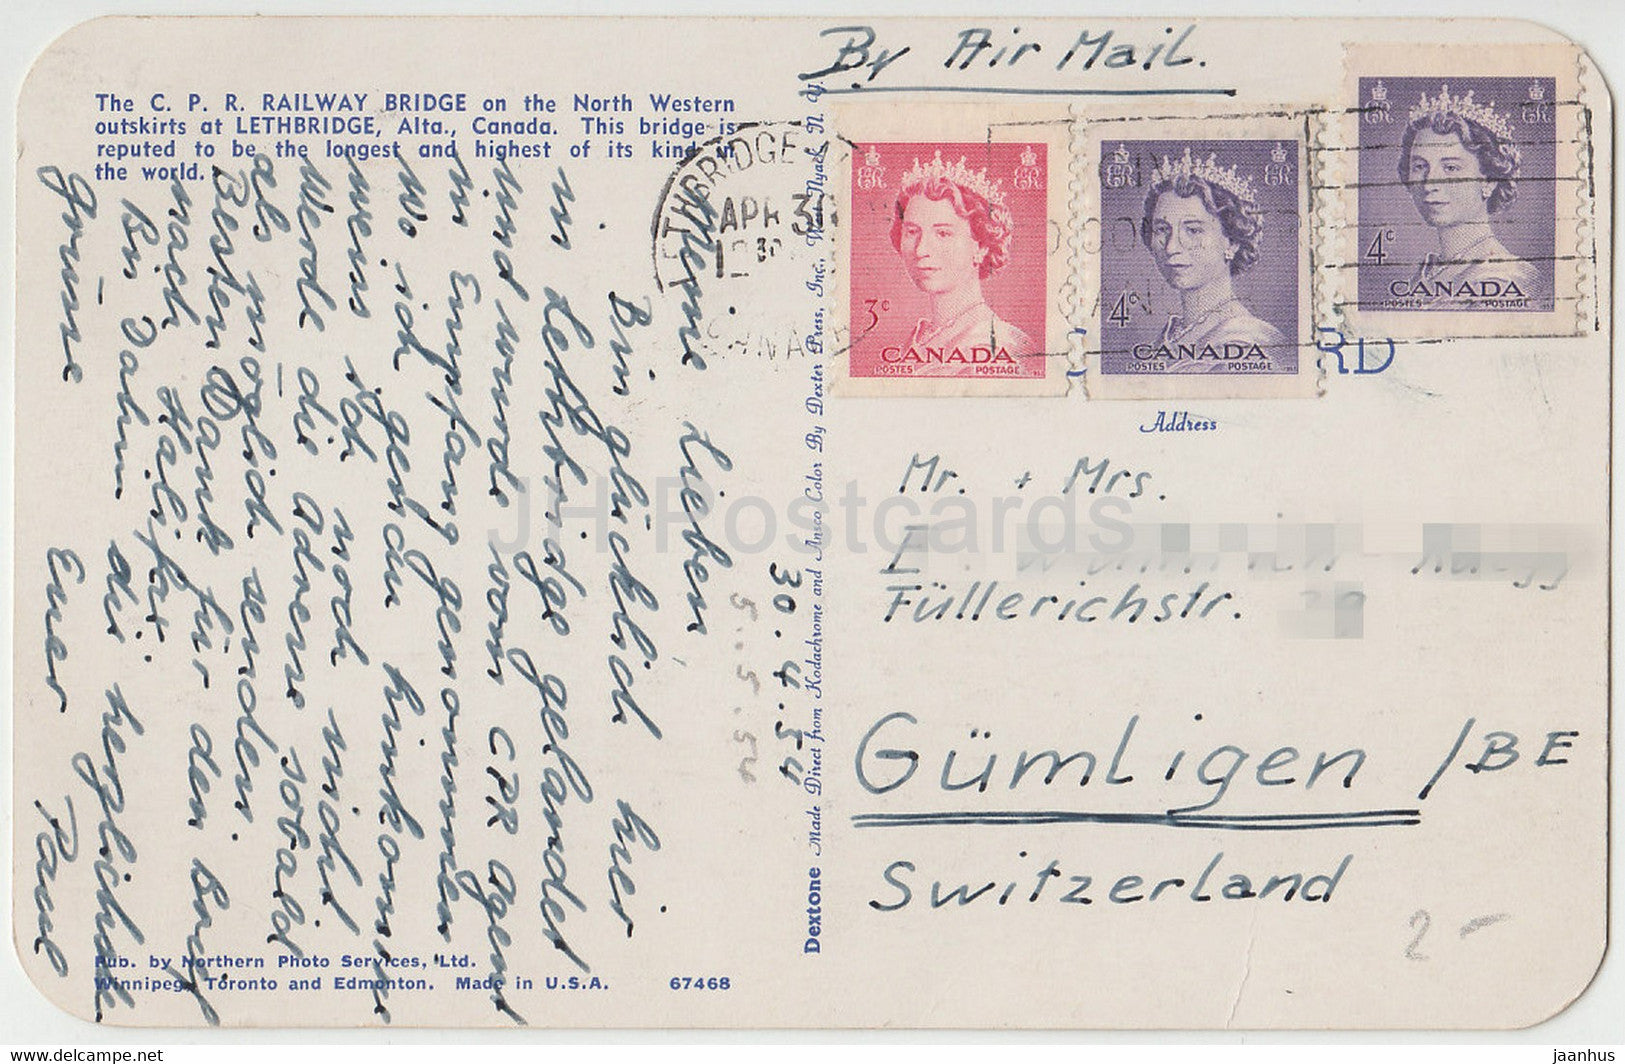 By Air Mail.
The C. P. R. RAILWAY BRIDGE on the North Western
outskirts at LETHBRIDGE, Alta., Canada. This bridge is
reputed to be the longest and highest of its kind in
the world.
LETHBRIDGE
APR 30
CANADA
3c
CANADA
POSTES POSTAGE
4c
CANADA
POSTES POSTAGE
4c
CANADA
POSTES POSTAGE
Address
Mr. + Mrs.
Füllerichstr.
Gümligen / BE
Switzerland
2-
30.4.54
5.5.54
Meine Lieben,
Bin glücklich hier
in Lethbridge gelandet
und wurde vom CPR Agent
in Empfang genommen
Wo ich genau hinkomme
weiss ich noch nicht
Werde die Adresse sobald
als möglich senden.
Besten Dank für den Brief
nach Halifax
Bin Dahm die herzlichste
Grüsse Euer Paul
Dextone Made Direct from Kodachrome and Ansco Color By Dexter Press, Inc., West Nyack, N. Y.
Pub. by Northern Photo Services, Ltd.
Winnipeg, Toronto and Edmonton. Made in U.S.A. 67468
JH Postcards
www.delcampe.net
jaanhus